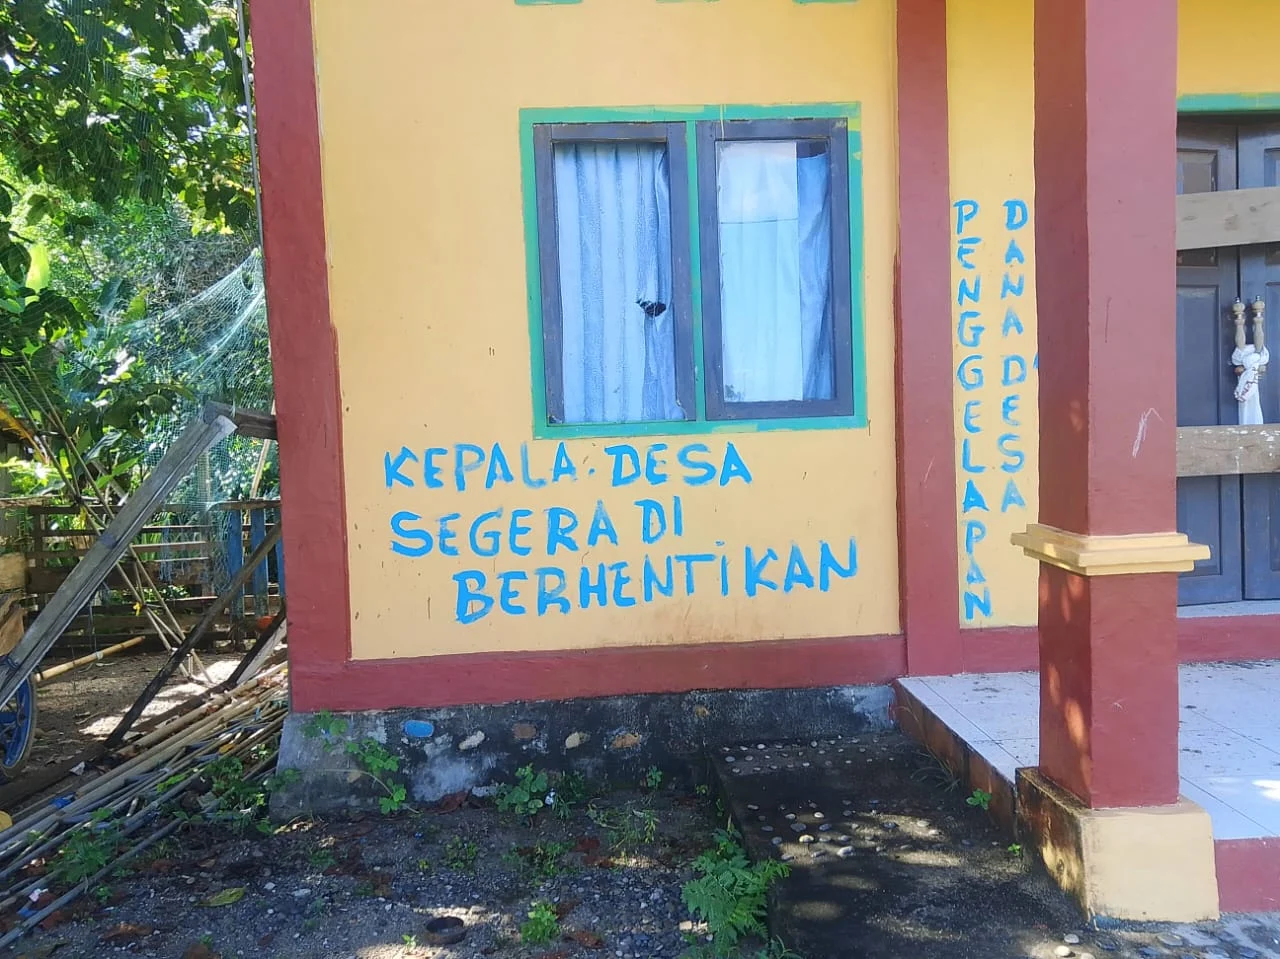 KEPALA. DESA
SEGERA DI
BERHENTIKAN
PENGGELAPAN
DANA DESA